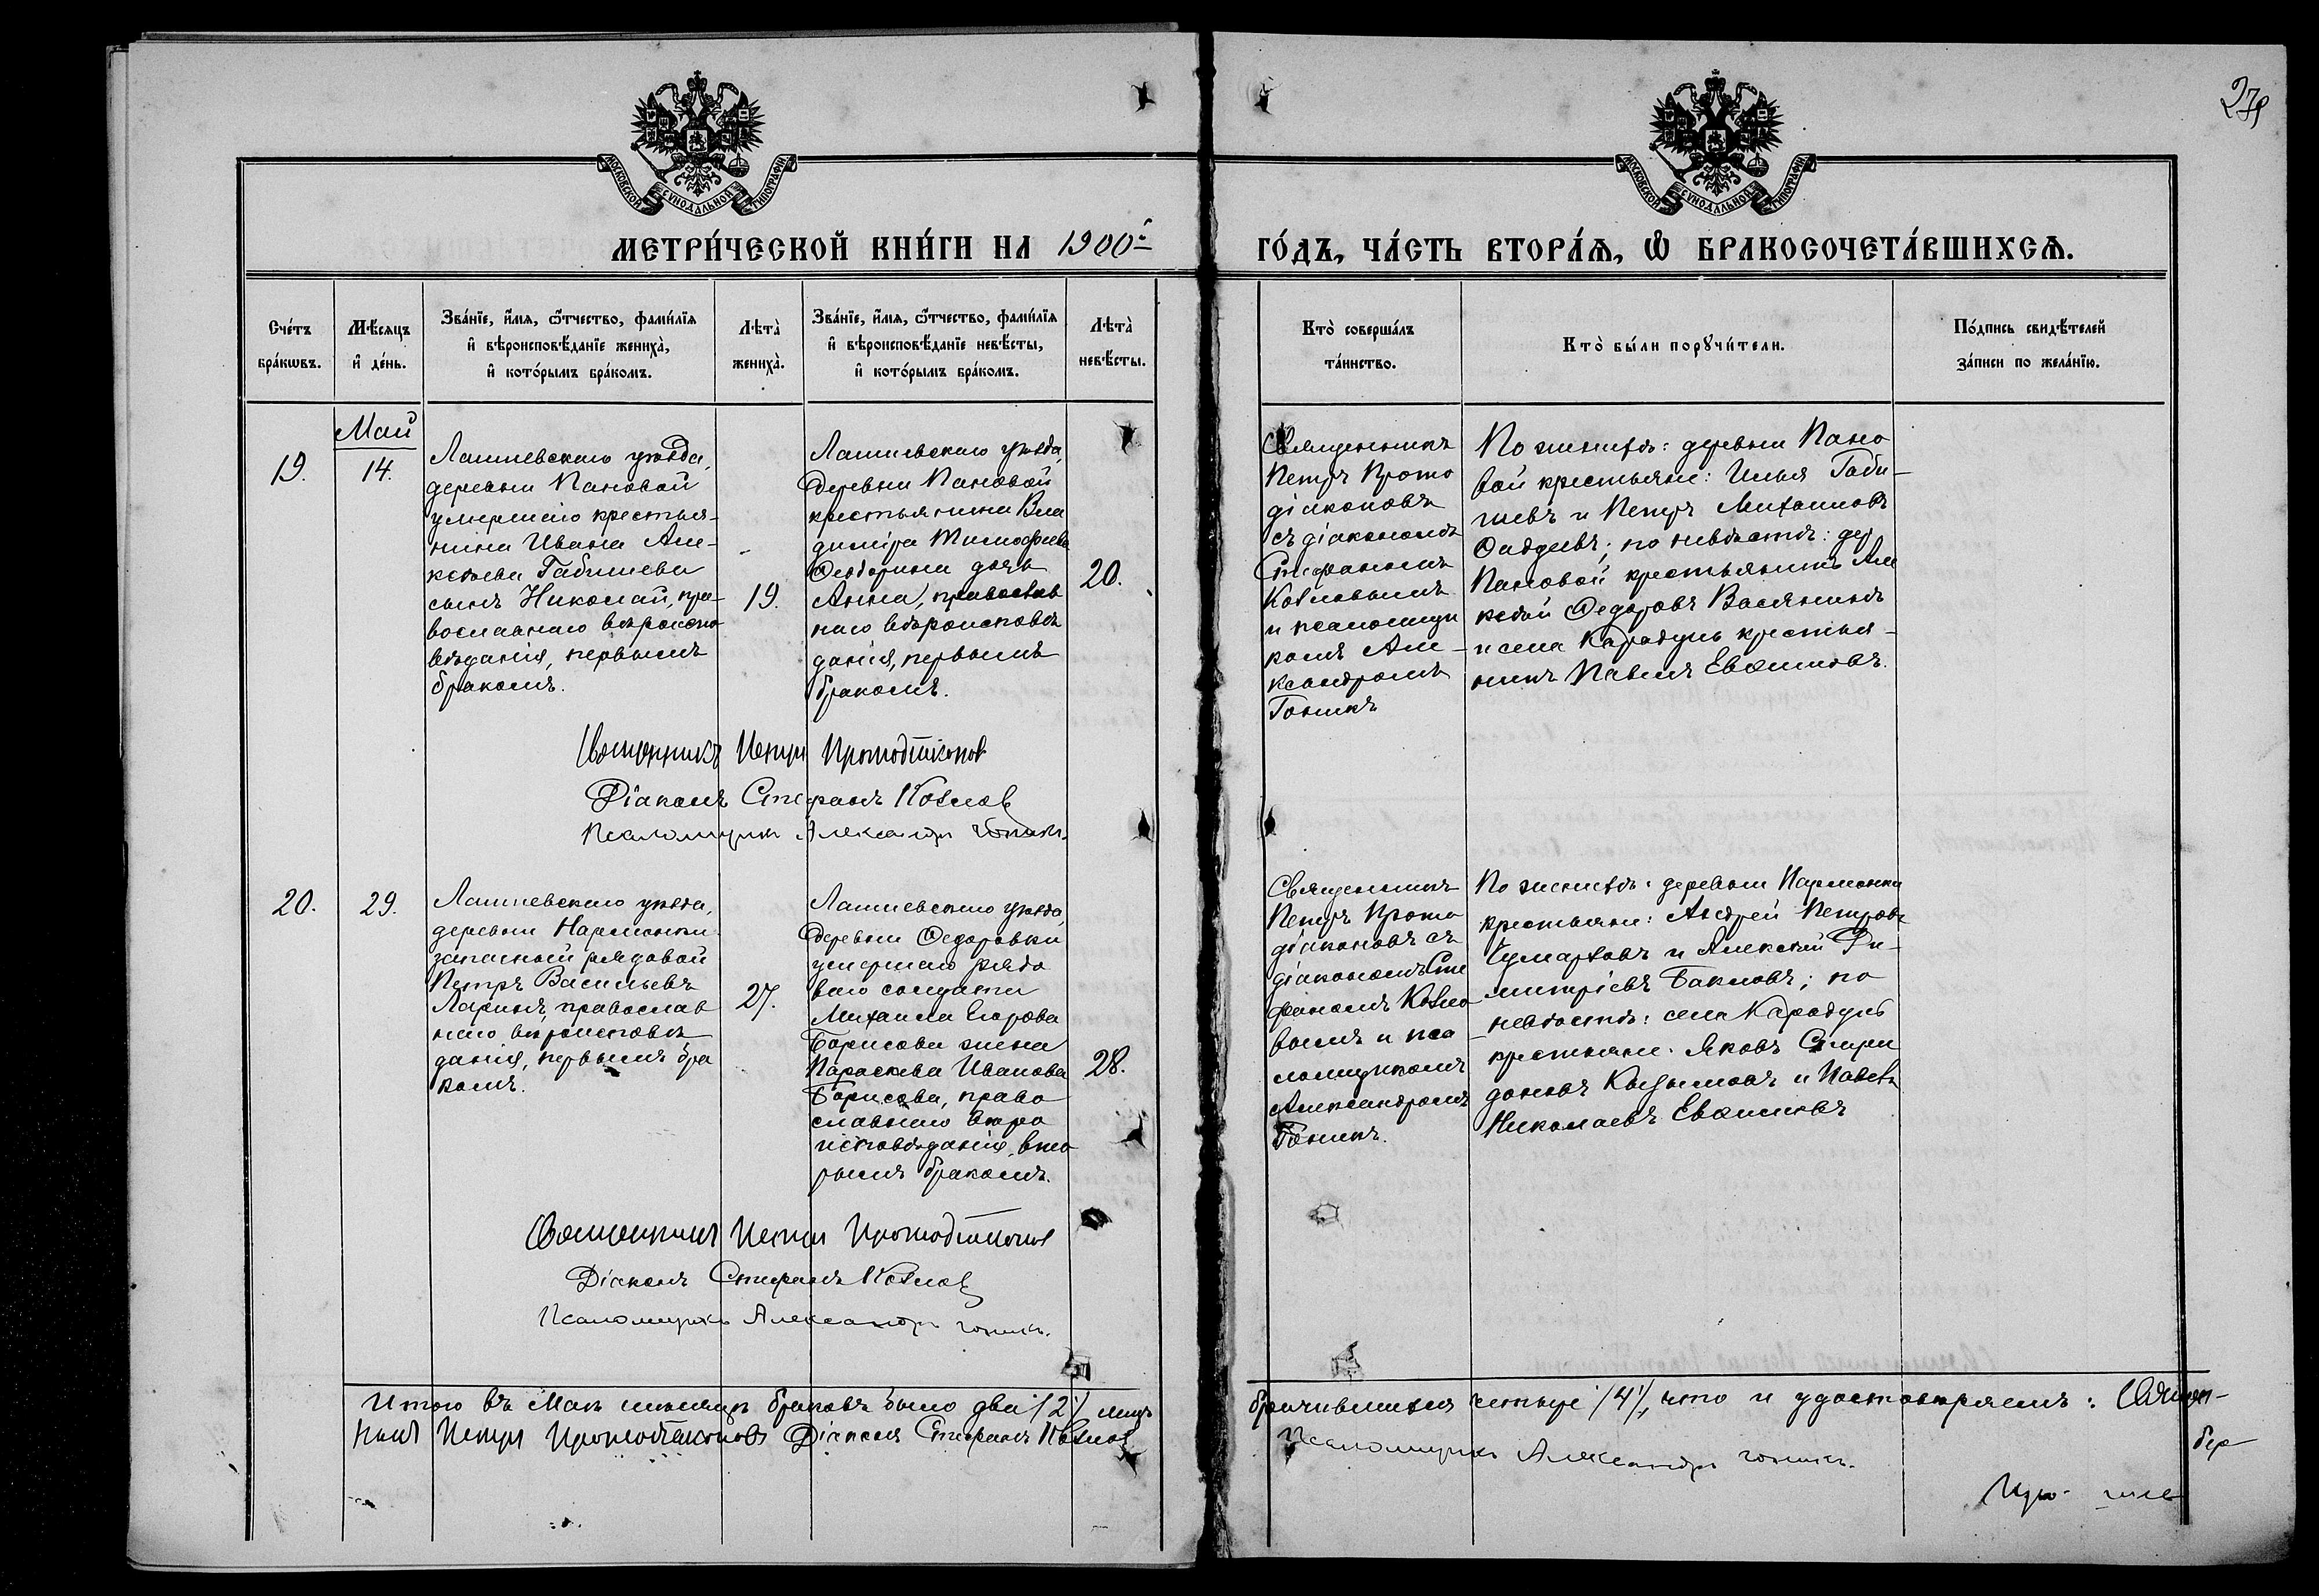 239
МОСКОВСКОЙ СУНОДАЛЬНОЙ ТИПОГРАФІИ
МОСКОВСКОЙ СУНОДАЛЬНОЙ ТИПОГРАФІИ
МЕТРИ́ЧЕСКОЙ КНИ́ГИ НА 1900й
ГО́ДЪ, ЧА́СТЬ ВТОРА́Ѧ, Ѡ҆ БРАКОСОЧЕТА́ВШИХСѦ.
Сче́тъ
бра́кѡвъ.
Мѣ́сяцъ
и҆ де́нь.
Зва́нїе, и҆́мѧ, ѻ҆́тчество, фами́лїѧ
и҆ вѣроисповѣ́данїе жениха̀,
и҆ кото́рымъ бра́комъ.
Лѣта̀
жениха̀.
Зва́нїе, и҆́мѧ, ѻ҆́тчество, фами́лїѧ
и҆ вѣроисповѣ́данїе невѣ́сты,
и҆ кото́рымъ бра́комъ.
Лѣта̀
невѣ́сты.
Кто̀ соверша́лъ
та́инство.
Кто̀ бы́ли порꙋчи́тели.
По́дпись свидѣ́телей
за́писи по жела́нїю.
19.
Май
14.
Лаишевскаго уѣзда,
деревни Пановой
умершаго крестья-
нина Ивана Але-
ксѣева Габишева
сынъ Николай, пра-
вославнаго вѣроиспо
вѣданія, первымъ
бракомъ.
19.
Лаишевскаго уѣзда,
деревни Пановой
крестьянина Вла
диміра Тимофѣева
дочь
Анна, православ
наго вѣроисповѣ
данія, первымъ
бракомъ.
20.
Священникъ
Петръ Прото
діаконовъ
съ діакономъ
Стефаномъ
Козловымъ
и псаломщи
комъ Але-
ксандромъ
Гоникъ
По женихѣ: деревни Пано
вой крестьяне: Илья Габи-
шевъ и Петръ Михаиловъ
Фадѣевъ; по невѣстѣ: дер
Пановой крестьянинъ Але
ксѣй Ѳедоровъ Васянинъ
и села Карадулъ крестья-
нинъ Павелъ Евоимовъ.
Священникъ Петръ Протодіаконов
Діаконъ Стефанъ Козлов
Псаломщикъ Александръ Гоникъ.
20.
29.
Лаишевскаго уѣзда,
деревни Нармонки
запасный рядовой
Петръ Васильевъ
Ларинъ, православ
наго вѣроисповѣ
данія, первымъ бра
комъ.
27.
Лаишевскаго уѣзда,
деревни Ѳедоровки
умершаго рядо
ваго солдата
Михаила Егорова
Борисова жена
Параскева Иванова
Борисова, право
славнаго вѣро
исповѣданія, вто
рымъ бракомъ.
28.
Священникъ
Петръ Прото
діаконовъ съ
діакономъ Сте
фаномъ Козло
вымъ и пса
ломщикомъ
Александромъ
Гоникъ.
По женихѣ: деревни Нармонки
крестьяне: Андрей Петровъ
и Алексѣй Ди-
митріевъ Баклоvъ; по
невѣстѣ: села Карадулъ
крестьяне: Яковъ Спири
доновъ и Павелъ
Николаевъ Евоимовъ
Священникъ Петръ Протодіаконов
Діаконъ Стефанъ Козлов
Псаломщикъ Александръ Гоникъ.
Итого въ Маѣ мѣсяцѣ браковъ было два /2/ лицъ
бракившихся четыре /4/, что и удостовѣряемъ: Священ-
никъ Петръ Протодіаконовъ Діаконъ Стефанъ Козлов
Псаломщикъ Александръ Гоникъ.